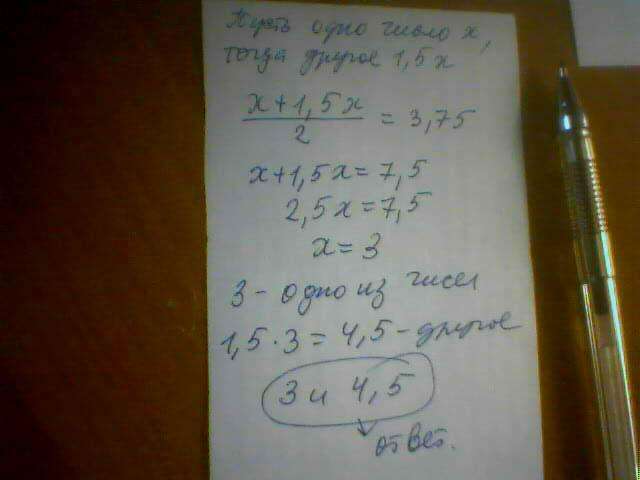 Пусть одно число x,
тогда другое 1,5x
x+1,5x
2
= 3,75
x+1,5x=7,5
2,5x=7,5
x=3
3 - одно из чисел
1,5·3=4,5 - другое
3 и 4,5
ответ.